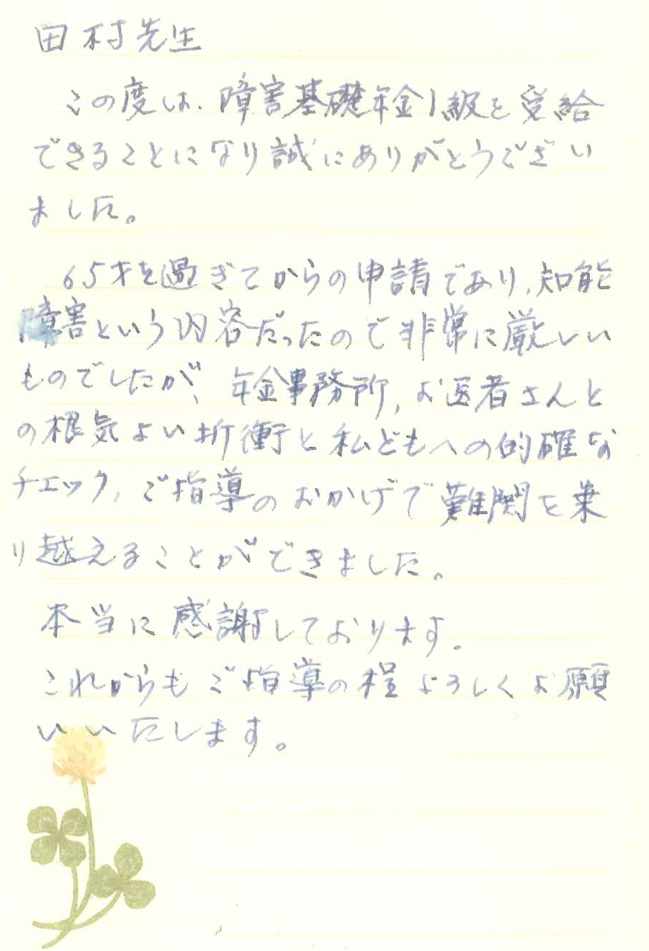 田村先生
この度は、障害基礎年金1級を受給
できることになり誠にありがとうござい
ました。
65才を過ぎてからの申請であり、知能
障害という内容だったので非常に厳しい
ものでしたが、年金事務所、お医者さんと
の根気よい折衝と私どもへの的確な
チェック、ご指導のおかげで難関を乗
り越えることができました。
本当に感謝しております。
これからもご指導の程よろしくお願
いいたします。